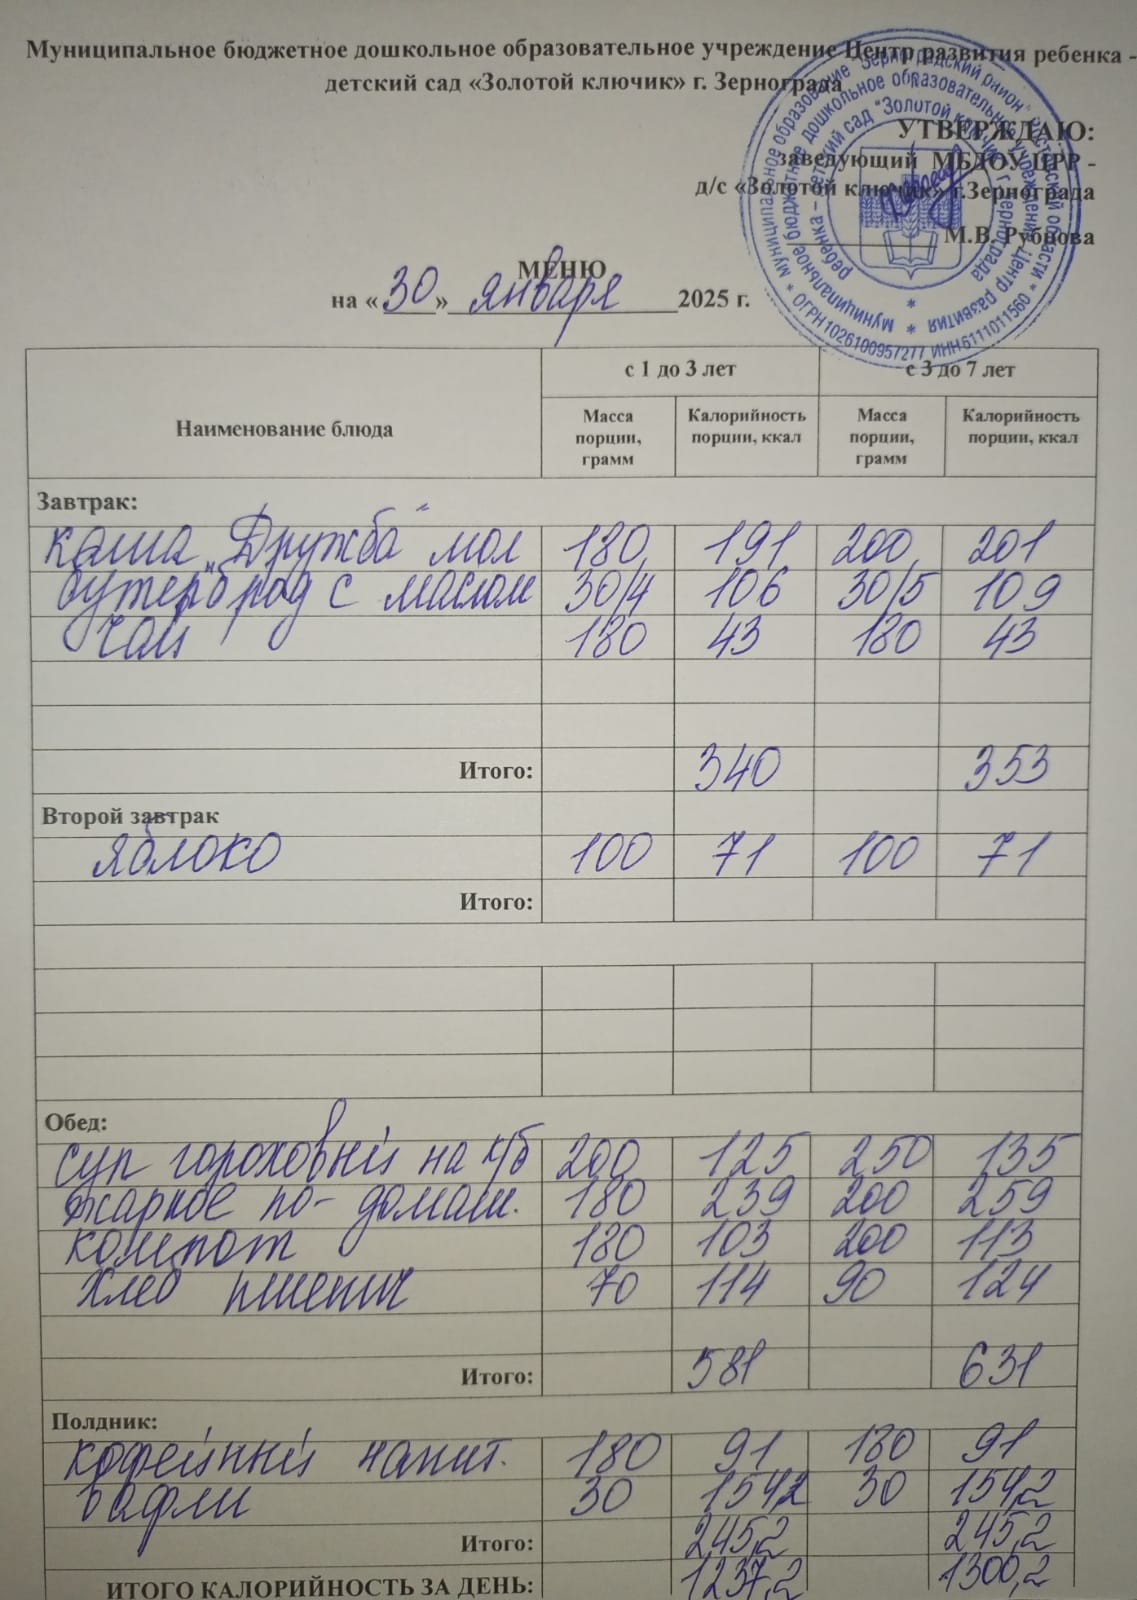 Муниципальное бюджетное дошкольное образовательное учреждение Центр развития ребенка -
детский сад «Золотой ключик» г. Зернограда
УТВЕРЖДАЮ:
заведующий МБДОУ ЦРР -
д/с «Золотой ключик» г.Зернограда
М.В. Рубцова
МЕНЮ
на «30» января 2025 г.
Наименование блюда с 1 до 3 лет с 3 до 7 лет
Масса порции, грамм Калорийность порции, ккал Масса порции, грамм Калорийность порции, ккал
Завтрак:
каша „Дружба" мол 180 191 200 201
бутерброд с маслом 30/4 106 30/5 109
чай 180 43 180 43
Итого: 340 353
Второй завтрак
яблоко 100 71 100 71
Итого:
Обед:
суп гороховый на к/б 200 125 250 135
жаркое по-домаш. 180 239 200 259
компот 180 103 200 113
хлеб пшенич 70 114 90 124
Итого: 581 631
Полдник:
кофейный напит. 180 91 180 91
вафли 30 154,2 30 154,2
Итого: 245,2 245,2
ИТОГО КАЛОРИЙНОСТЬ ЗА ДЕНЬ: 1237,2 1300,2
* муниципальное образование "Зерноградский район" Ростовской области *
* ОГРН 1026100957277 ИНН 6111011560 *
муниципальное бюджетное дошкольное образовательное учреждение Центр развития *
ребенка - детский сад "Золотой ключик" г. Зернограда